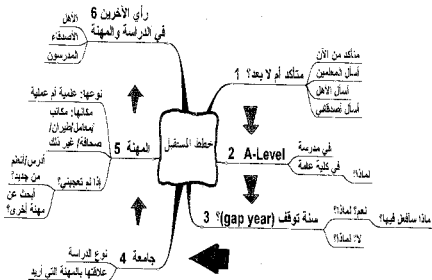 خطط المستقبل
1 متأكد أم لا بعد؟
متأكد من الآن
أسأل المعلمين
أسأل الأهل
أسأل أصدقائي
2 A-Level
في مدرسة
في كلية عامة
لماذا؟
3 سنة توقف (gap year)؟
نعم؟ لماذا؟
ماذا سأفعل فيها؟
لا؟ لماذا؟
4 جامعة
نوع الدراسة
علاقتها بالمهنة التي أريد
5 المهنة
نوعها: علمية أم عملية
مكانها: مكاتب
/معامل/طيران/
صحافة/ غير ذلك
إذا لم تعجبني؟
أدرس/أتعلم
من جديد؟
أبحث عن
مهنة أخرى؟
6 رأي الآخرين
في الدراسة والمهنة
الأهل
الأصدقاء
المدرسون